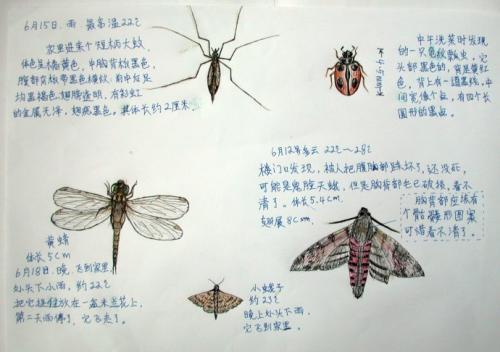 6月15日.雨 最高温22℃
家里进来个短柄大蚊.
体色是橘黄色,中胸背板黑色,
腹部背板带黑色横纹.前中后足
均黑褐色.翅膀透明.有彩虹
的金属光泽.翅痣黑色.具体长约2厘米.
中午洗菜时发现
的一只龟纹瓢虫,它
头部黑色的,背是黄红
色,背上有一道黑线,中
间宽像个点,有四个长
圆形的黑点.
6月12号多云 22℃~28℃
楼门口发现,被人把腹胸部踩坏了,还没死,
可能是鬼脸天蛾,但是胸背部毛已破损,看不
清了.体长5.4cm.
翅展8cm.
胸背部应该有
个骷髅形图案
可惜看不清了.
黄蜻
体长5cm
6月18日.晚,飞到家里.
外头下小雨,约22℃
把它放在一盆米兰花上,
第二天雨停了,它飞走了.
小蛾子
约23℃
晚上外头下雨.
它飞到家里.